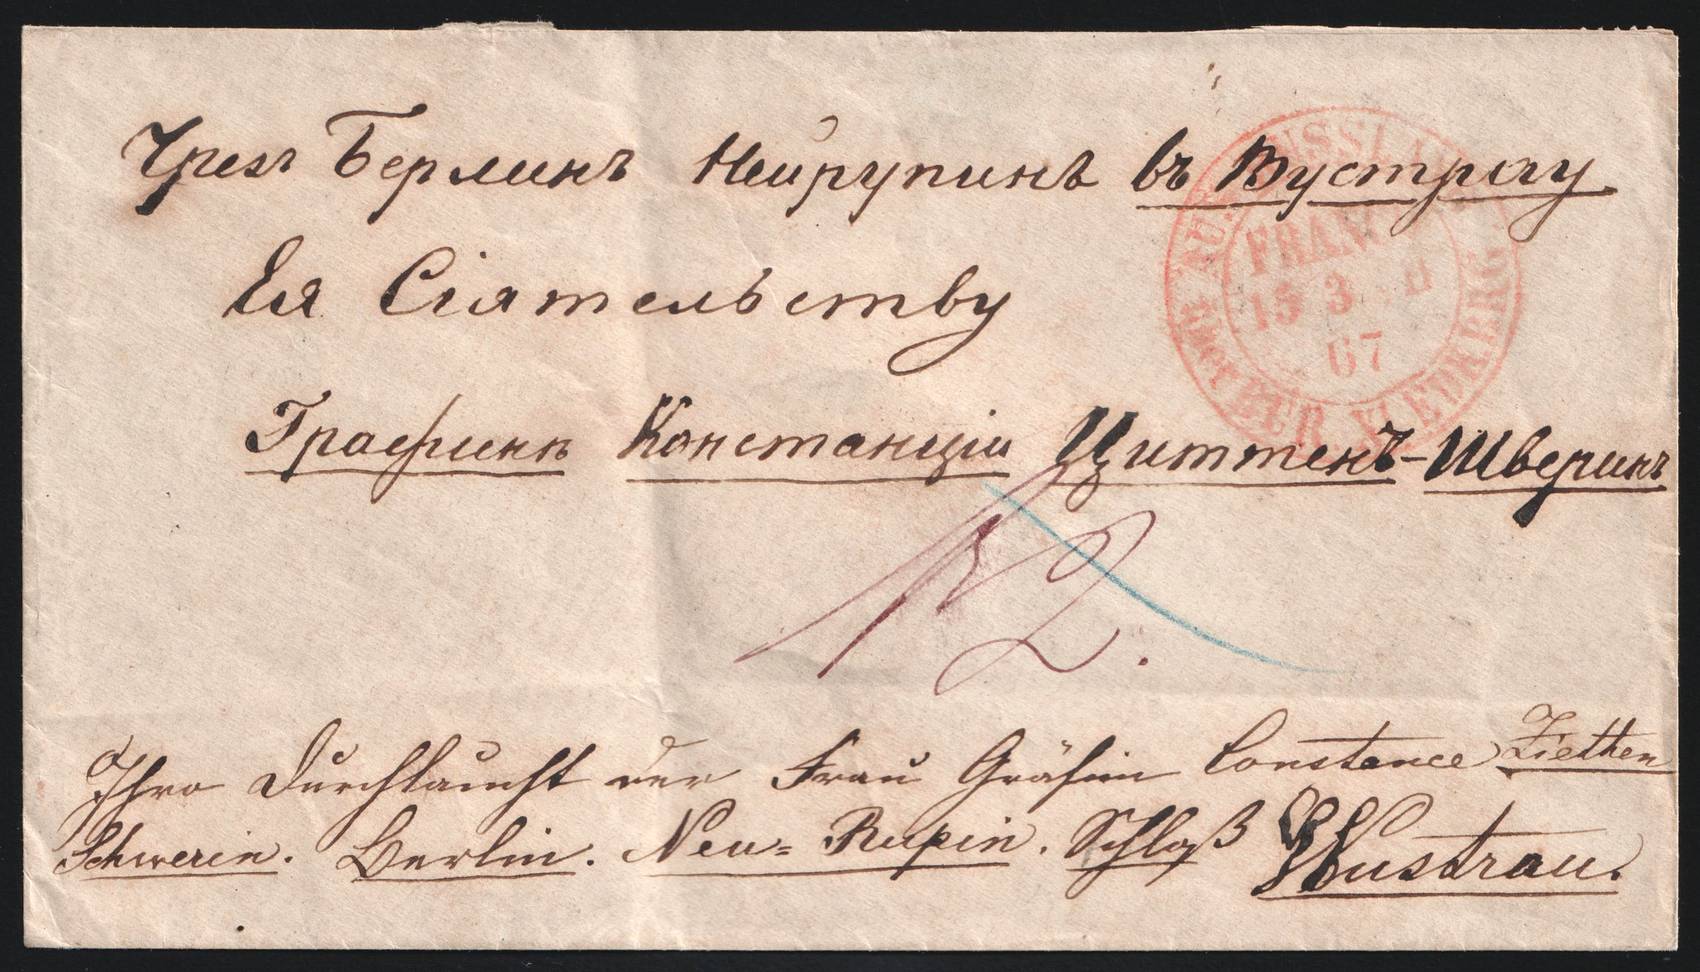 Чрезъ Берлинъ Нейрупинъ въ Вустрау
Ея Сіятельству
Графинѣ Константціи Циттенъ-Шверинъ
AUS RUSSLAND
FRANCO
15 3 II
67
über EUR. XI EDKBRG
12.
Ihro Durchlaucht der Frau Gräfin Constance Ziethen
Schwerin. Berlin. Neu=Rupin. Schloß Wustrau.